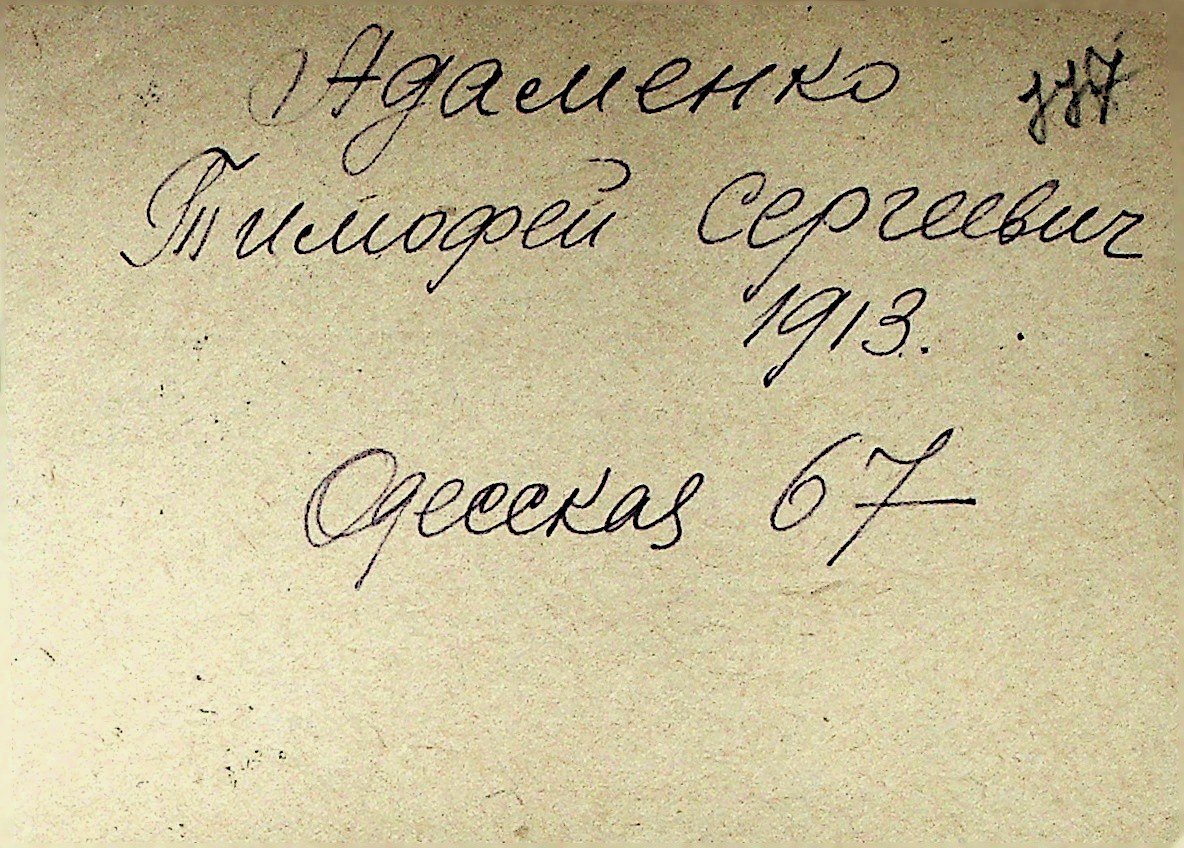 Адаменко
Тимофей Сергеевич
1913.
Одесская 67